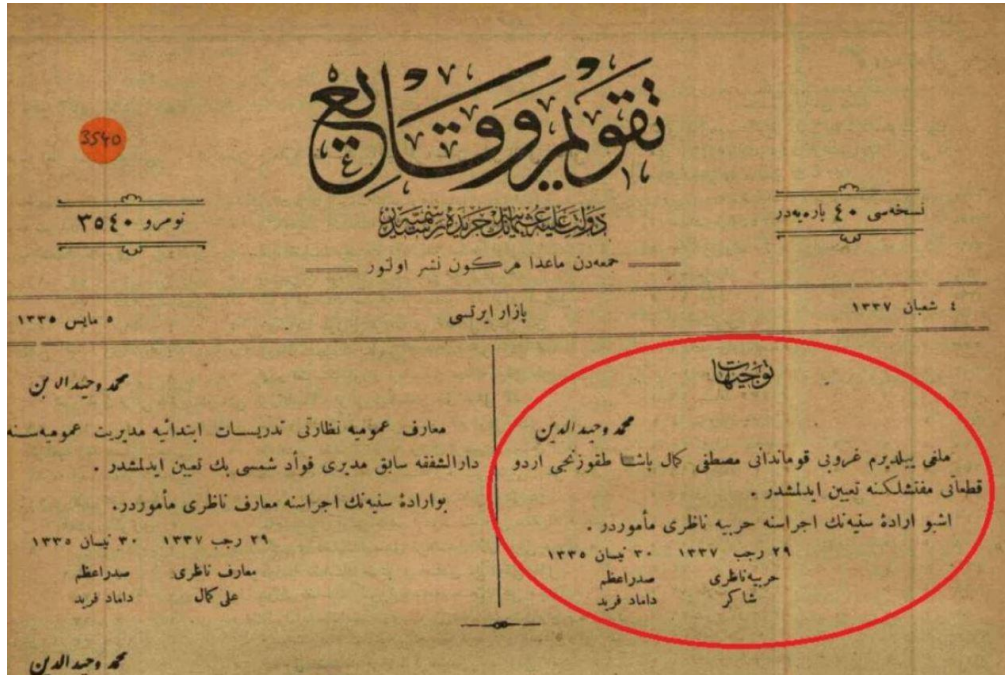 3540
تقويم وقايع
نسخه‌سی ٤٠ پاره‌یه‌در
دولت عليه عثمانيه‌نك جريدهٔ رسميه‌سيدر
نومرو ٣٥٤٠
جمعه‌دن ماعدا هر كون نشر اولنور
٤ شعبان ١٣٣٧
پازار ايرتسی
٥ مايس ١٣٣٥
توجيهات
محمد وحيد الدين
ملغی ييلديرم غروپی قوماندانی مصطفی كمال پاشا طقوزنجی اردو
قطعاتی مفتشلكنه تعيين ايدلمشدر .
اشبو ارادهٔ سنيه‌نك اجراسنه حربيه ناظری مأموردر .
٢٩ رجب ١٣٣٧ ٣٠ نيسان ١٣٣٥
حربيه ناظری صدراعظم
شاكر داماد فريد
محمد وحيد الدين
معارف عموميه نظارتی تدريسات ابتدائيه مديريت عموميه‌سنه
دارالشفقه سابق مديری فؤاد شمسی بك تعيين ايدلمشدر .
بو ارادهٔ سنيه‌نك اجراسنه معارف ناظری مأموردر.
٢٩ رجب ١٣٣٧ ٣٠ نيسان ١٣٣٥
معارف ناظری صدراعظم
علی كمال داماد فريد
محمد وحيد الدين